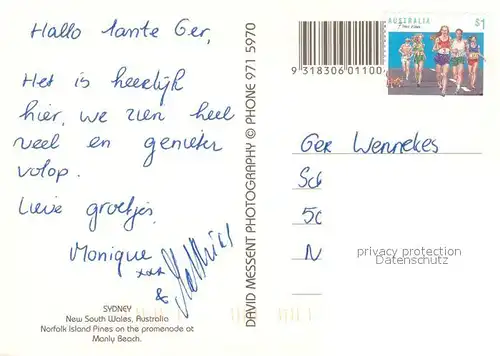 Hallo tante Ger,
Het is heerlijk
hier, we zien heel
veel en genieten
volop.
Lieve groetjes
Monique
xxx
& Matthias
SYDNEY
New South Wales, Australia
Norfolk Island Pines on the promenade at
Manly Beach.
DAVID MESSENT PHOTOGRAPHY © PHONE 971 5970
9 318306 01100
AUSTRALIA $1
Ger Wennekes
Sc
50
N
privacy protection
Datenschutz